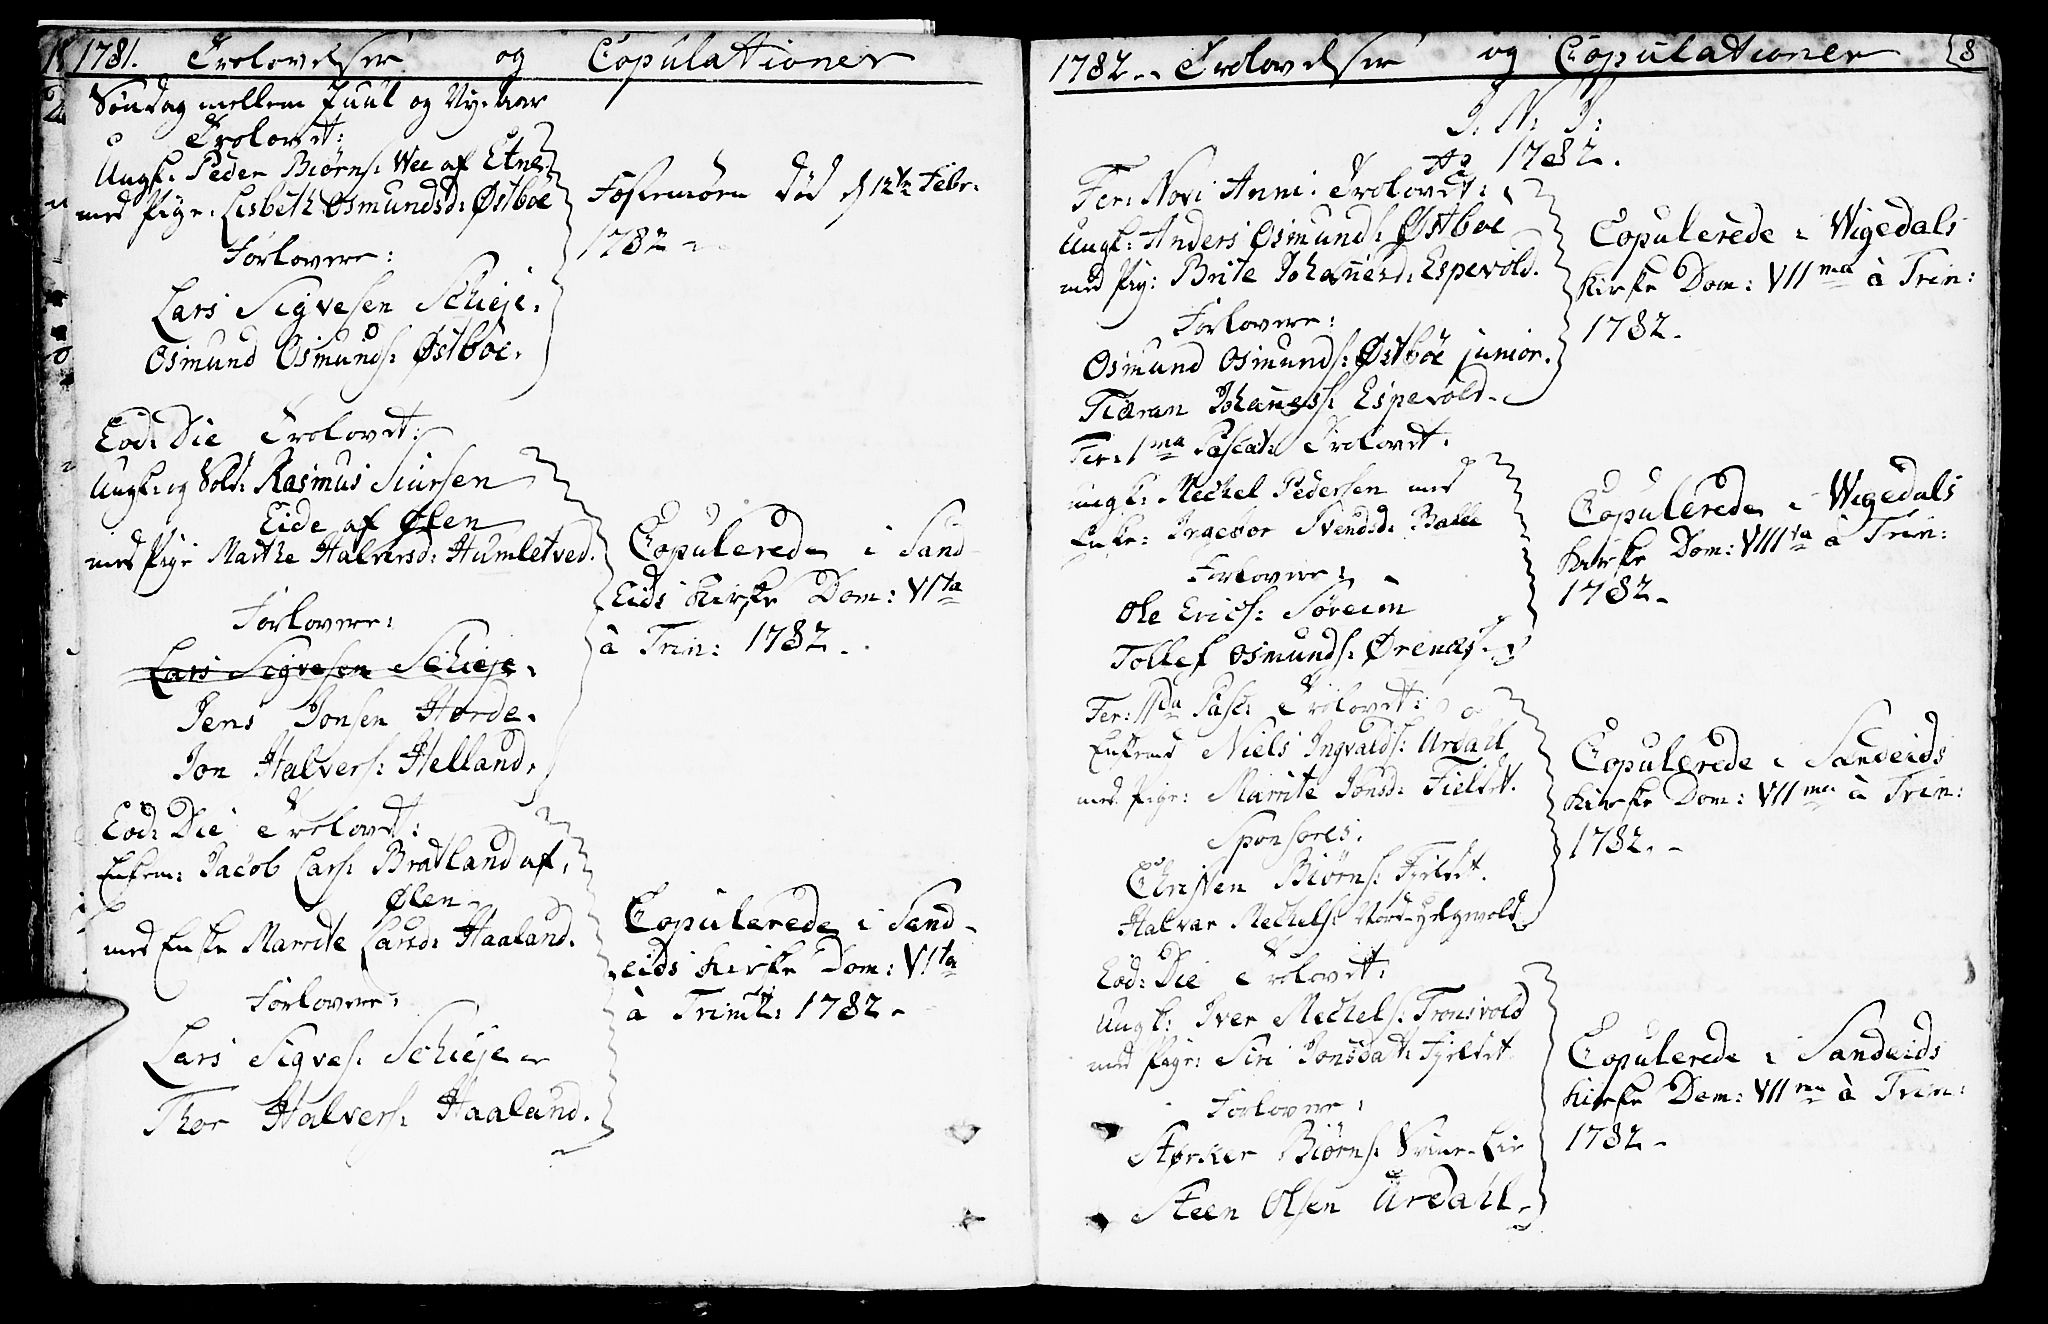 1781. Trolovelser og Copulationer
Søndag mellem Juul og Nye-Aar
Trolovet:
Ungk: Peder Biørns: Wee af Etne
med Pige: Lisbeth Osmundsd: Østbøe
Forlovere:
Lars Sigvesen Schieje.
Osmund Osmunds: Østbøe.
Fæstemøen död d 12te Febr:
1782
Eod: Die Trolovet:
Ungk: og Sold: Rasmus Siursen
Eide af Ølen
med Pige Marthe Halversd: Humletved.
Forlovere:
Lars Sigvesen Schieje.
Jens Jonsen Hørde.
Jon Halvers: Helland.
Copulerede i Sand-
Eids Kirke Dom: VIta
à Trin: 1782.
Eod: Die Trolovet:
Enkem: Jacob Lars: Bratland af
Ølen
med Enke Marrite Larsd: Haaland.
Forlovere:
Lars Sigves: Schieje
Thor Halvers: Haaland.
Copulerede i Sand-
eids Kirke Dom: VIta
à Trinit: 1782.
1782. Trolovelser og Copulationer 8
J: N: J:
Ao 1782.
Fer: Novi Anni Trolovet:
Ungk: Anders Osmunds: Østbøe
med Pig: Brite Johannesd: Espevold.
Forlovere:
Osmund Osmunds: Østbøe junior.
Tiæran Johaness: Espevold.
Copulerede i Wigedals
Kirke Dom: VIIma à Trin:
1782.
Fer: 1ma Pascat: Trolovet:
ungk: Mechel Pedersen med
Enke: Ingebor Svendsd: Balle
Forlovere:
Ole Erics: Søreim
Tollef Osmunds: Ørenæs.
Copulerede i Wigedals
Kirke Dom: VIIIva à Trin:
1782.
Fer: IIda Pasc: Trolovet:
Enkemd Niels Ingvalds: Urdahl
med Pige: Marrite Jonsd: Fieldet.
Sponsores:
Christen Biørns: Fieldet.
Halvar Mechels: Nord-Helgevold
Copulerede i Sandeids
Kirke Dom: VIIma à Trin:
1782.
Eod: Die Trolovet:
Ungk: Iver Mechels: Tronsvold
med Pige: Siri Jonsdat: Fjeldet
Forlovere:
Størker Biørns: Svine-Lie
Steen Olsen Urdahl.
Copulerede i Sandeids
Kirke Dom: VIIma à Trin:
1782.